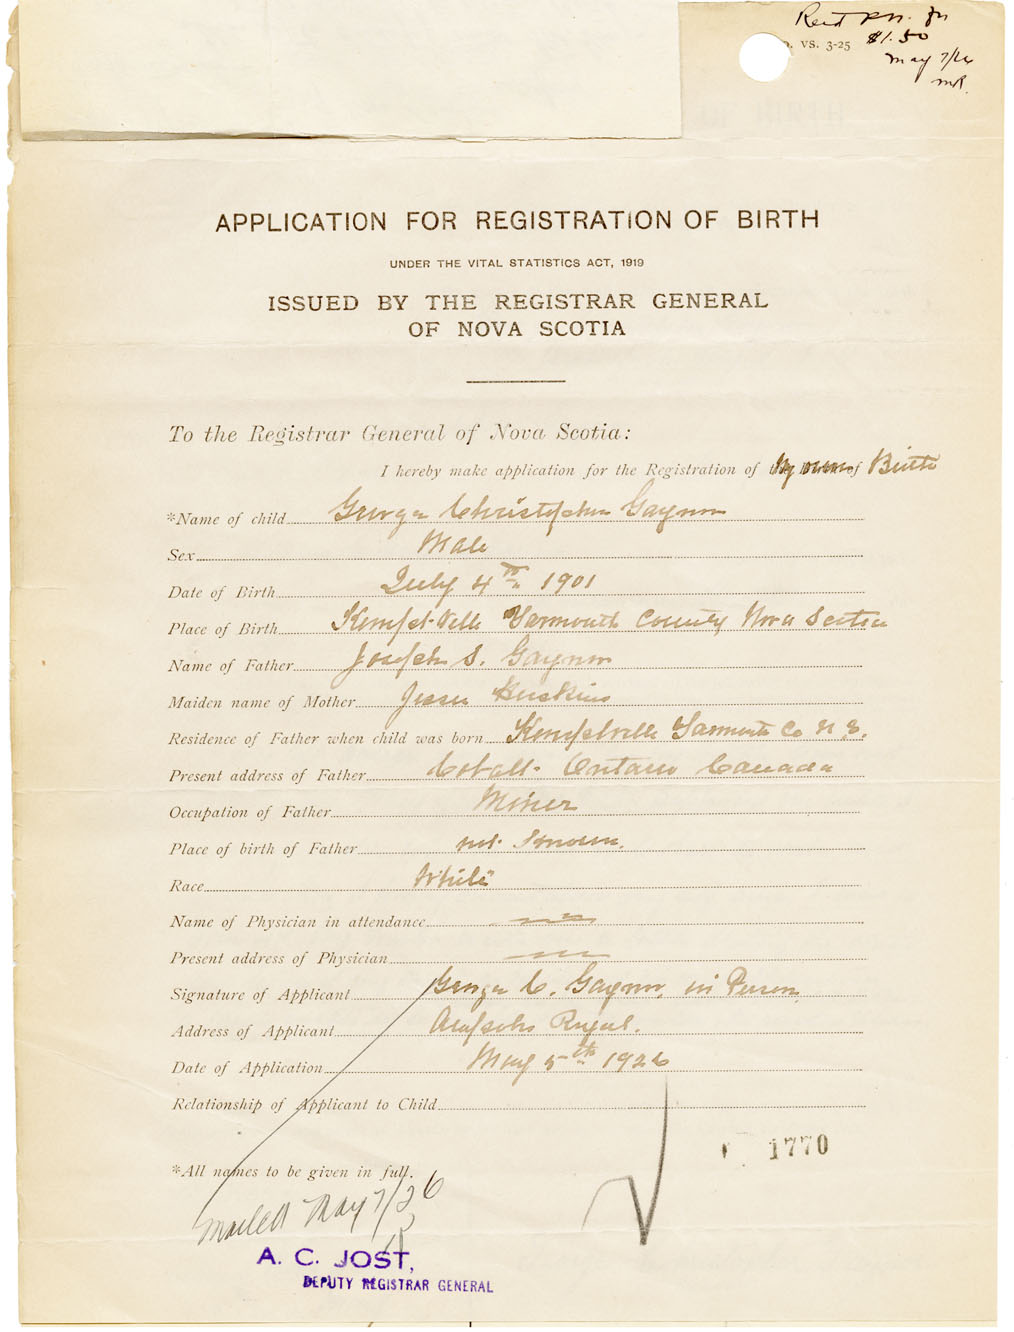 Recd P.N. for
o. VS. 3-25 $1.50
May 7/26
MR.
APPLICATION FOR REGISTRATION OF BIRTH
UNDER THE VITAL STATISTICS ACT, 1919
ISSUED BY THE REGISTRAR GENERAL
OF NOVA SCOTIA
To the Registrar General of Nova Scotia:
I hereby make application for the Registration of My own Birth
*Name of child George Christopher Gaynor
Sex Male
Date of Birth July 4th 1901
Place of Birth Kempt-ville Yarmouth County Nova Scotia
Name of Father Joseph S. Gaynor
Maiden name of Mother Jessie
Residence of Father when child was born Kemptville Yarmouth Co N.S.
Present address of Father Cobalt Ontario Canada
Occupation of Father Miner
Place of birth of Father not Known.
Race White
Name of Physician in attendance
Present address of Physician
Signature of Applicant George C. Gaynor, in Person
Address of Applicant Royal.
Date of Application May 5th 1926
Relationship of Applicant to Child
1770
*All names to be given in full.
Mailed May 7/26
A. C. JOST,
DEPUTY REGISTRAR GENERAL